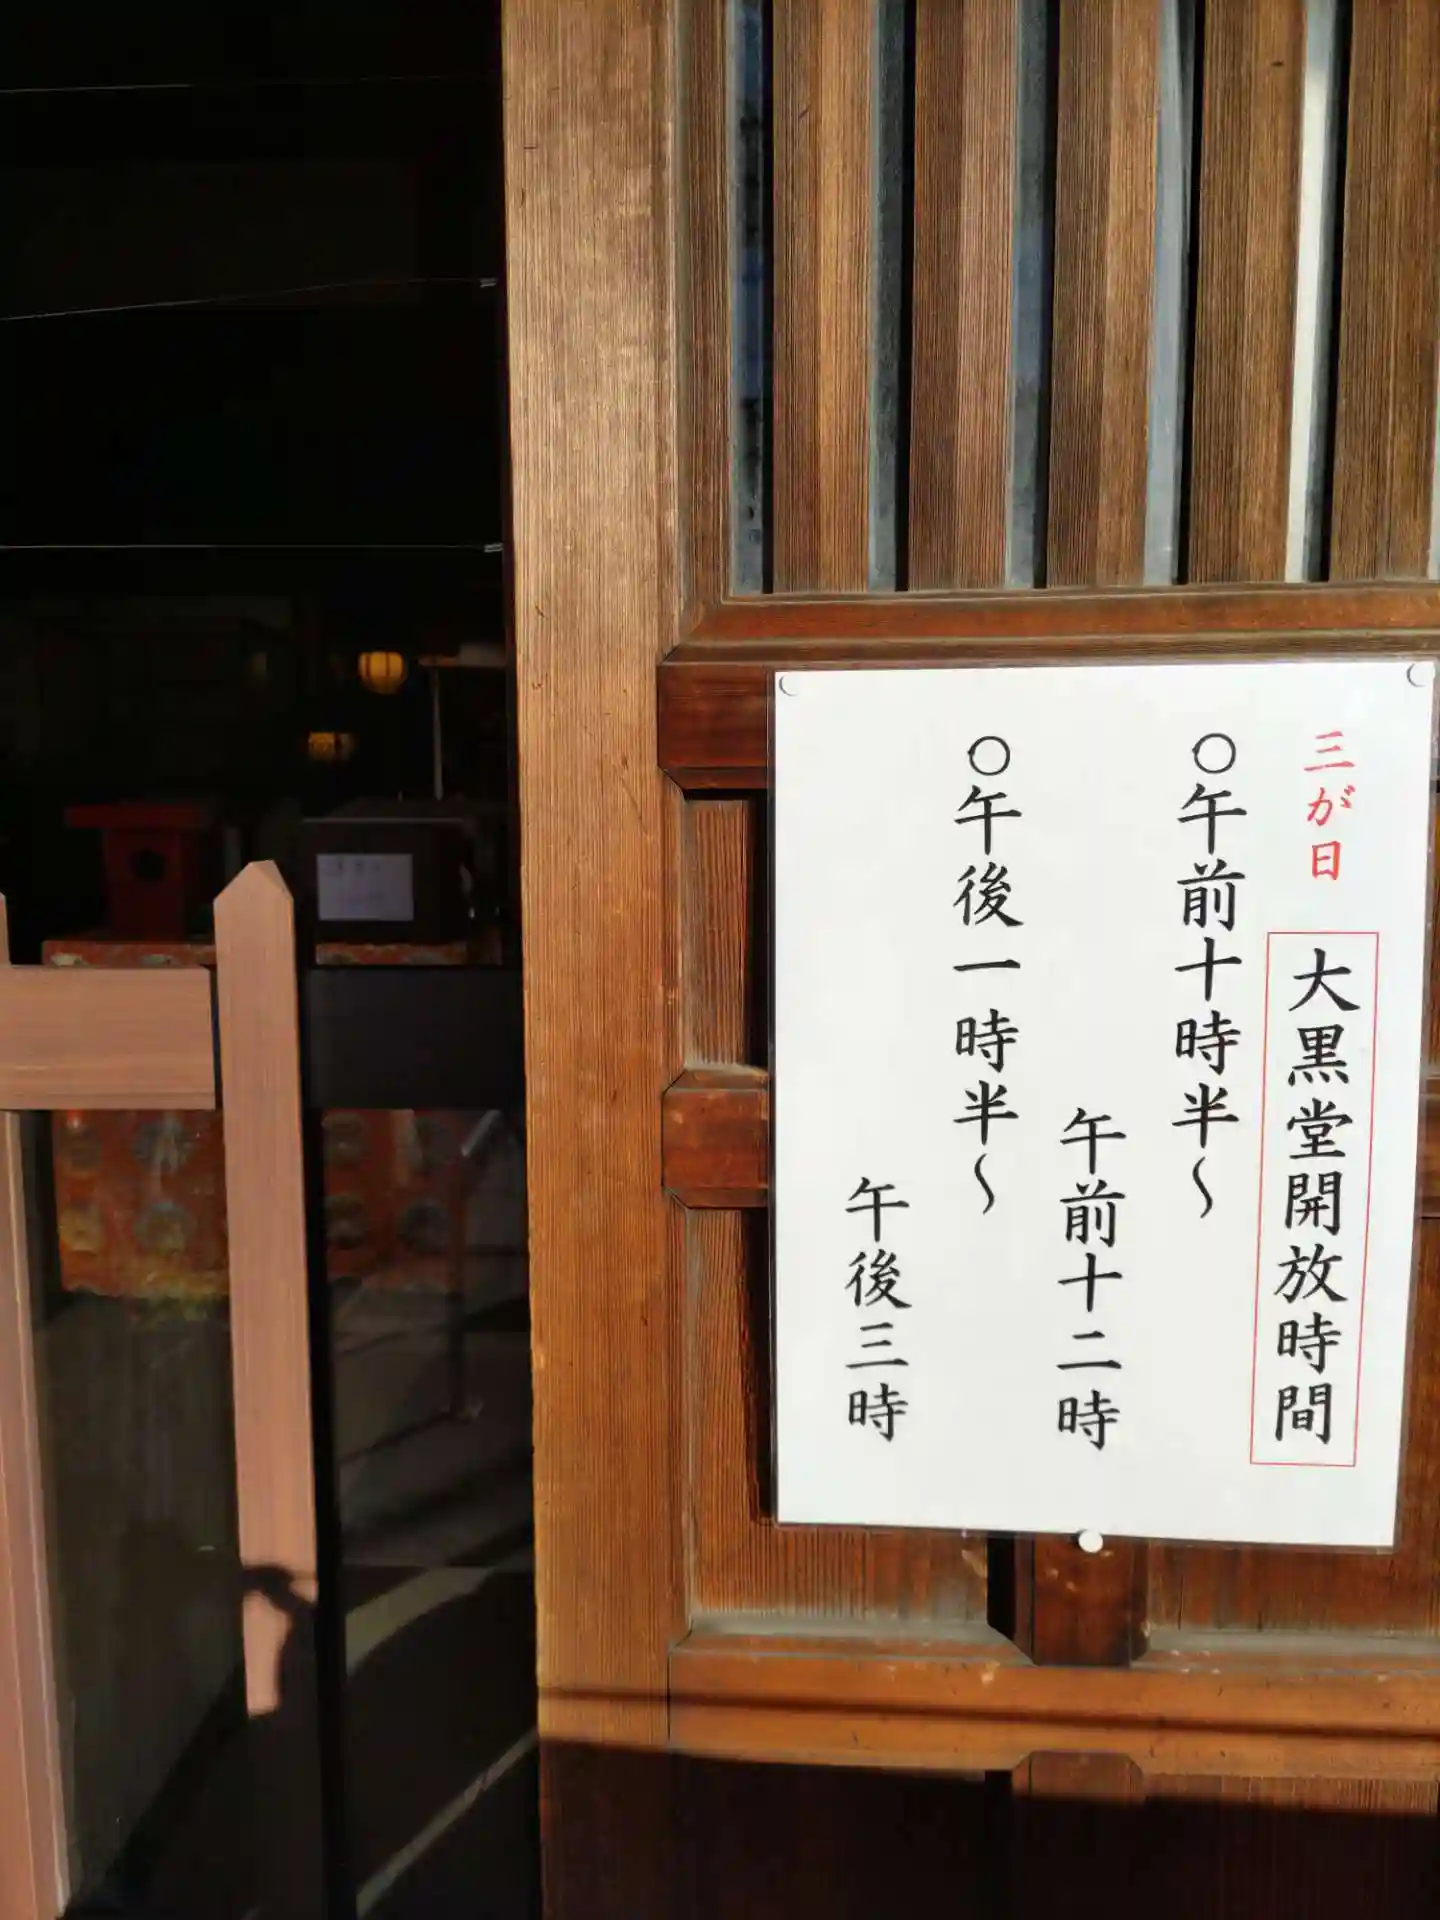 三が日 大黒堂開放時間
○午前十時半〜
午前十二時
○午後一時半〜
午後三時